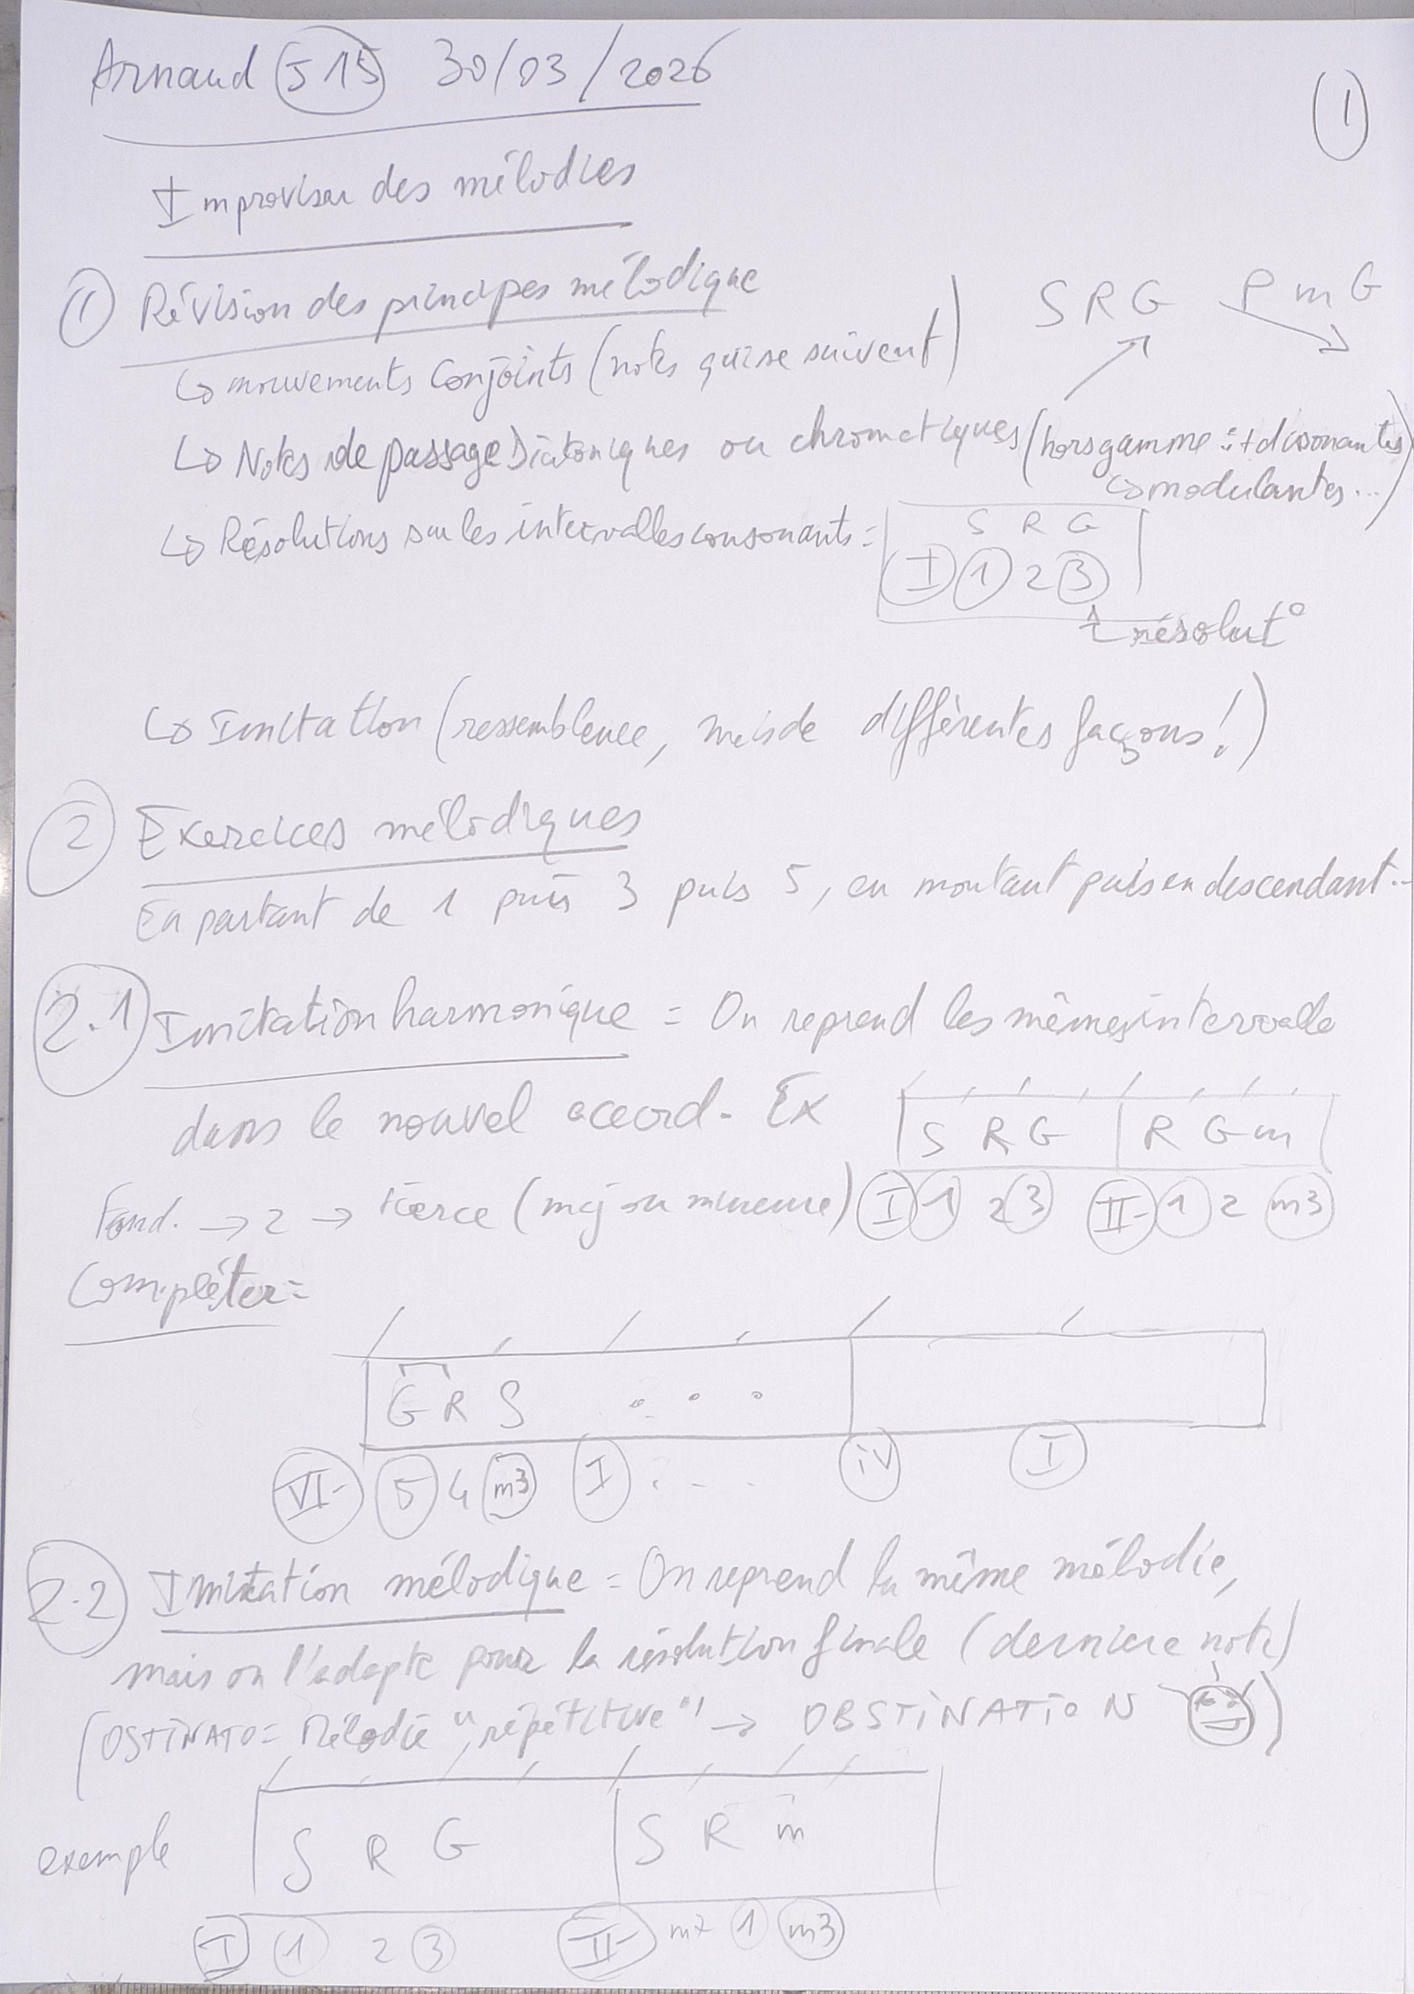 Arnaud S15 30/03/2026
1
Improviser des mélodies
1 Révision des principes mélodique
↳ mouvements conjoints (notes qui se suivent)
S R G P m G
↳ Notes de passage Diatoniques ou chromatiques (hors gamme : + dissonantes
↳ modulantes...)
↳ Résolutions sur les intervalles consonants =
S R G
I 1 2 3
résolut°
↳ Imitation (ressemblence, mais de différentes façons!)
2 Exercices mélodiques
En partant de 1 puis 3 puis 5, en montant puis en descendant..
2.1 Imitation harmonique = On reprend les mêmes intervalle
dans le nouvel accord. Ex
S R G R G m
Fond. → 2 → tierce (maj ou mineure) I 1 2 3 II- 1 2 m3
Compléter =
G R S . . .
VI- 5 4 m3 I . . . iv I
2.2 Imitation mélodique = On reprend la même mélodie,
mais on l'adapte pour la résolution finale (derniere note)
(OSTINATO = Mélodie "répétitive" → OBSTINATION )
exemple
S R G S R m
I 1 2 3 II- m7 1 m3